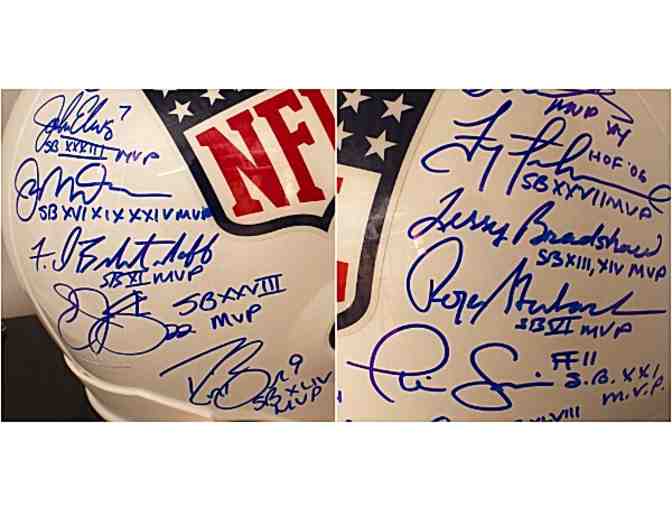 John Elway 7
SB XXXIII MVP
NF
SB XVI XIX XXIV MVP
F. Biletnikoff
SB XI MVP
SB XXVIII
22 MVP
9
SB XLIV
MVP
MVP
Troy Aikman HOF '06
SB XXVII MVP
Terry Bradshaw
SB XIII, XIV MVP
Roger Staubach
SB VI MVP
Phil Simms #11
S.B. XXI
M.V.P.
XLVIII